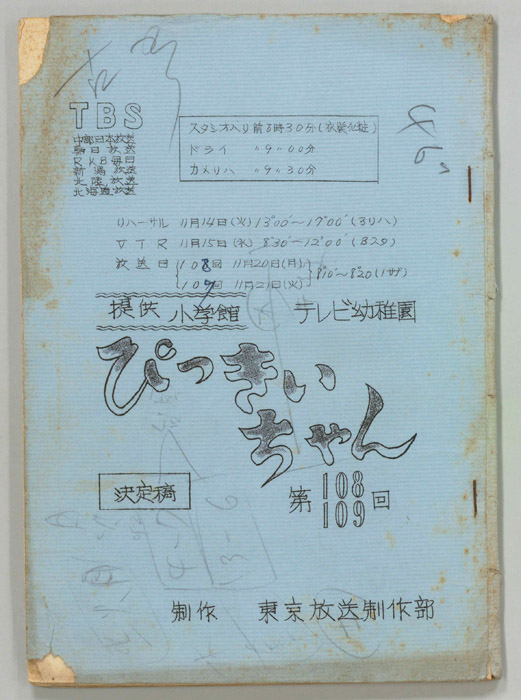 TBS
中部日本放送
朝日放送
RKB毎日
新潟放送
北陸放送
北海道放送
スタジオ入り 前8時30分(衣裳化粧)
ドライ 〃9〃00分
カメリハ 〃9〃30分
46
リハーサル 11月14日(火) 13°00′〜17°00′(3リハ)
VTR 11月15日(水) 8°30′〜12°00′(Bスタ)
放送日 108回 11月20日(月) 8°10′〜8°20′
109回 11月21日(火)
提供 小学館 テレビ幼稚園
ぴっきい
ちゃん
決定稿
第108 109回
制作 東京放送制作部